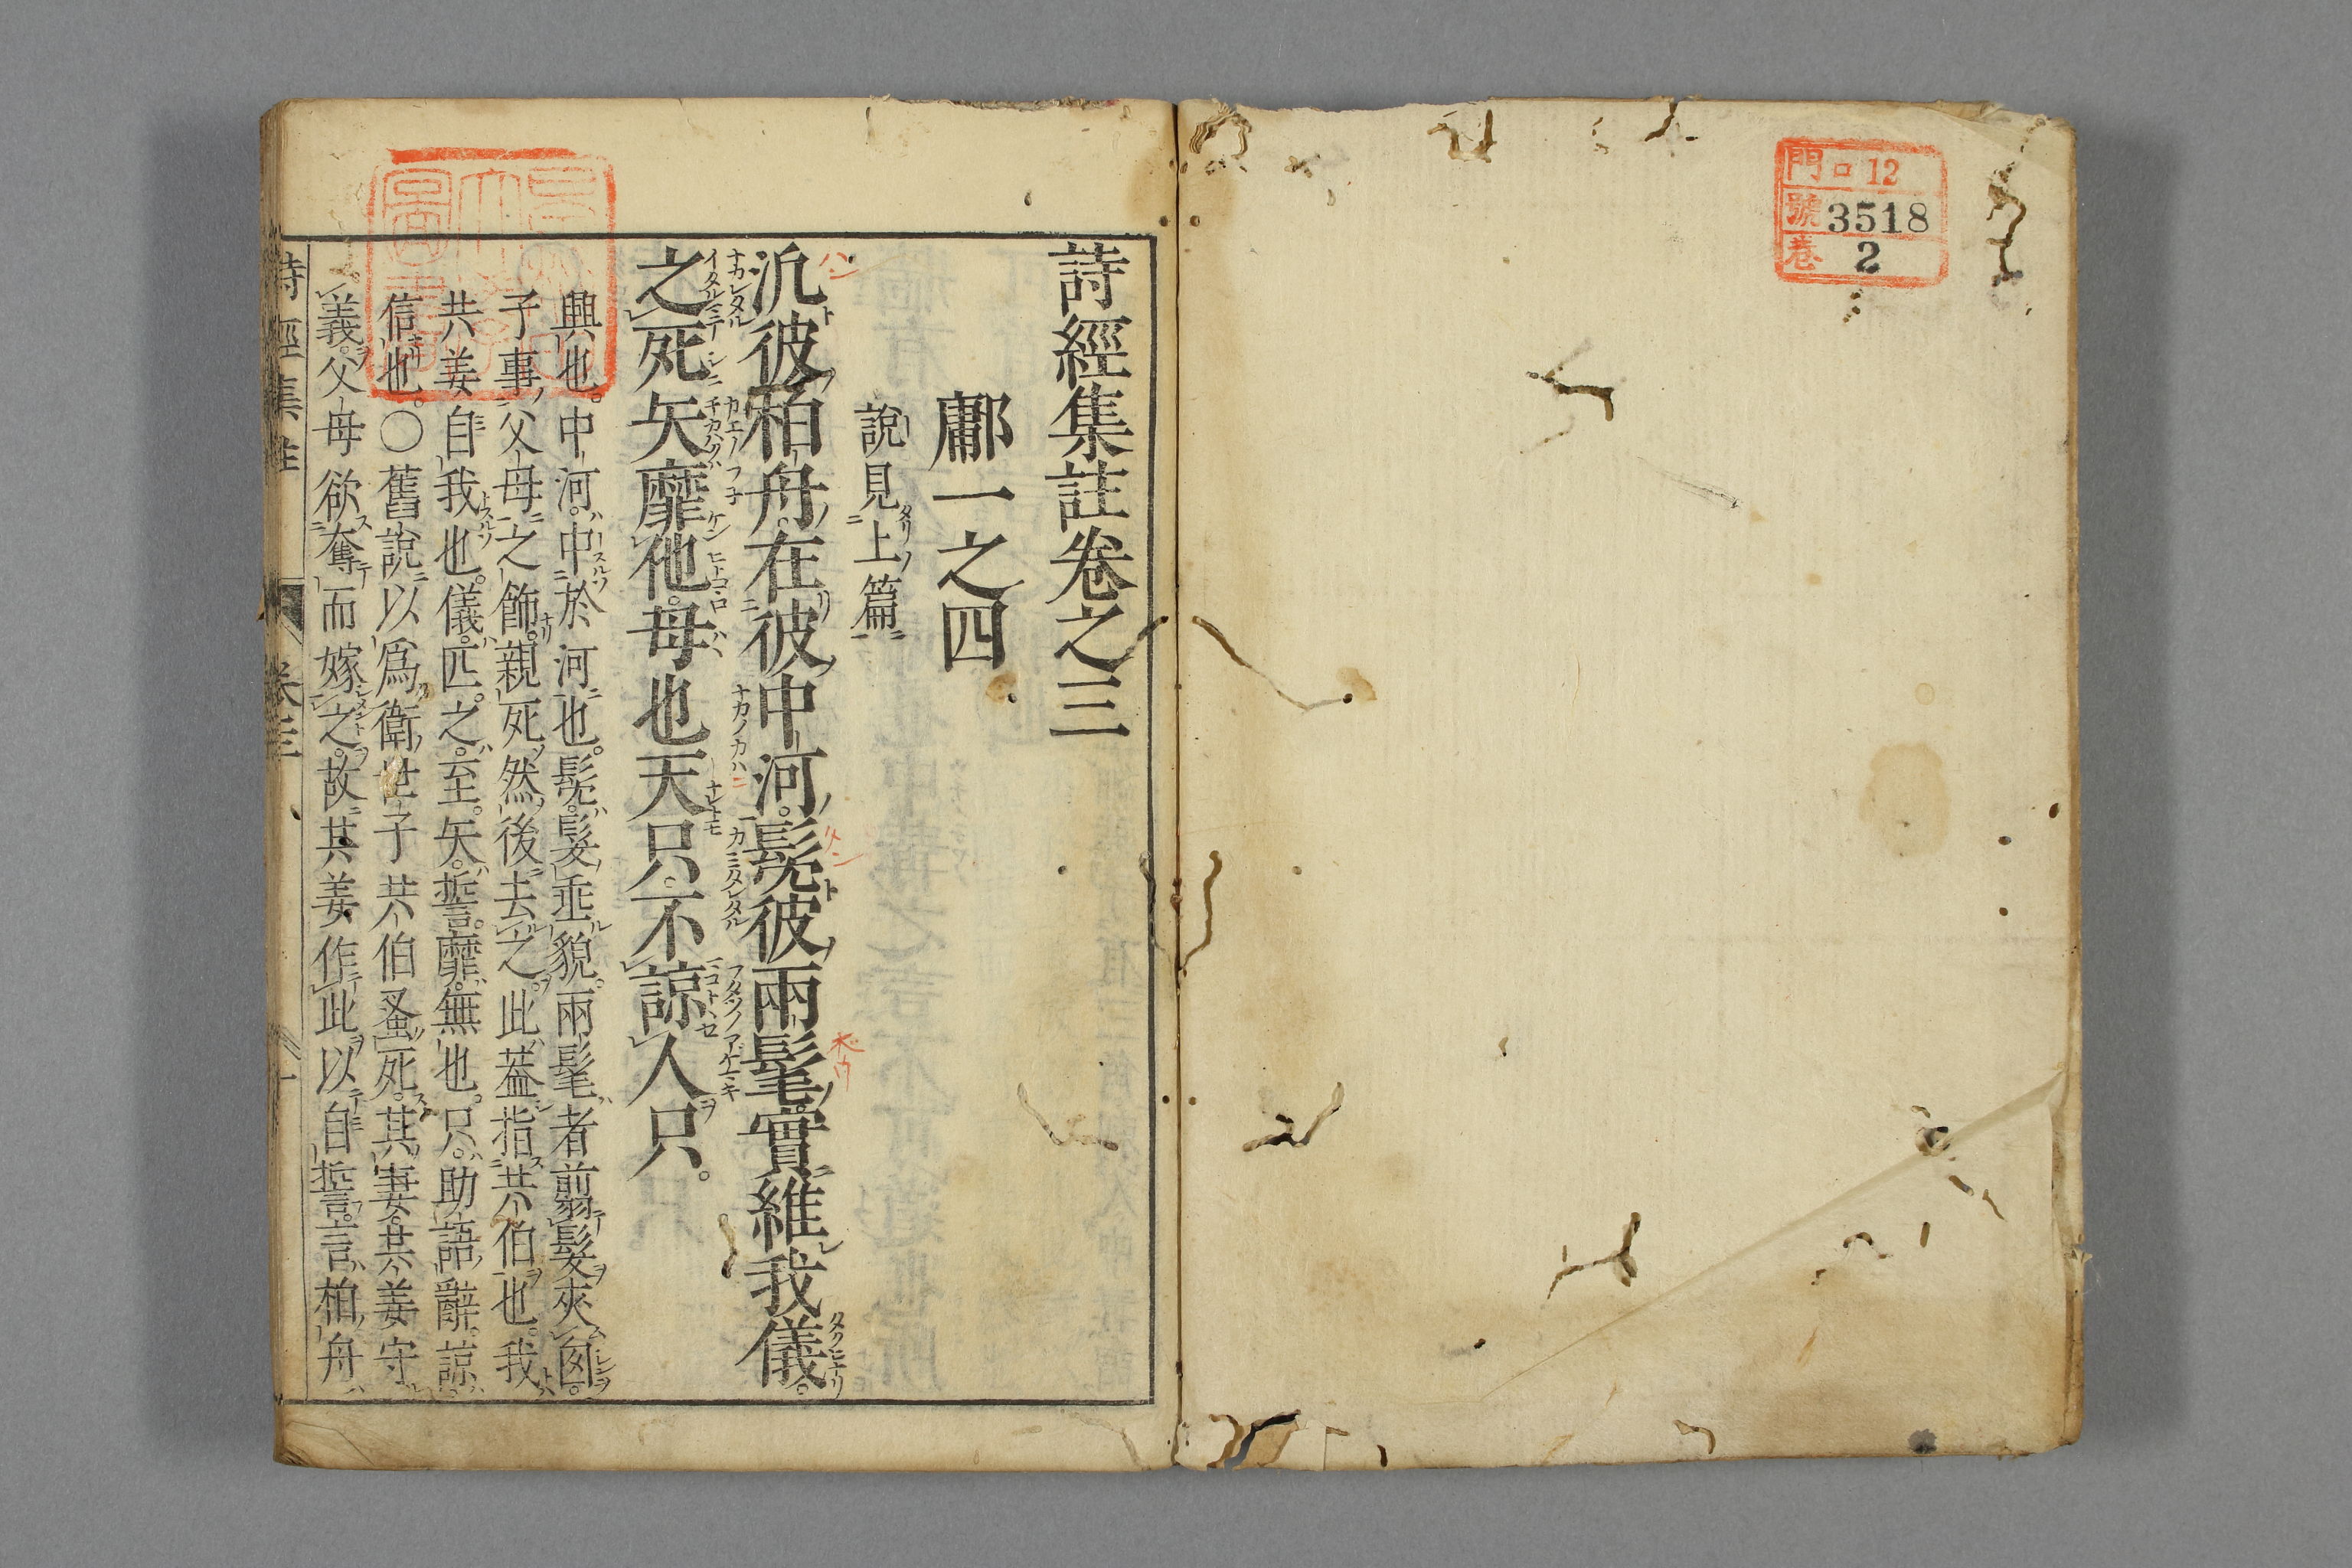 門 ロ 12
號 3518
卷 2
詩經集註卷之三
鄘一之四
說見上篇
汎彼柏舟。在彼中河。髧彼兩髦。實維我儀。
之死矢靡他。母也天只。不諒人只。
興也。中河。中於河也。髧。髮垂貌。兩髦者。翦髮夾囟。
子事父母之飾。親死然後去之。此蓋指共伯也。我
共姜自我也。儀。匹。之。至。矢。誓。靡。無也。只。助語辭。諒。
信也。○舊說以爲衞世子共伯蚤死。其妻共姜守
義。父母欲奪而嫁之。故共姜作此以自誓。言柏舟
詩經集註 卷三